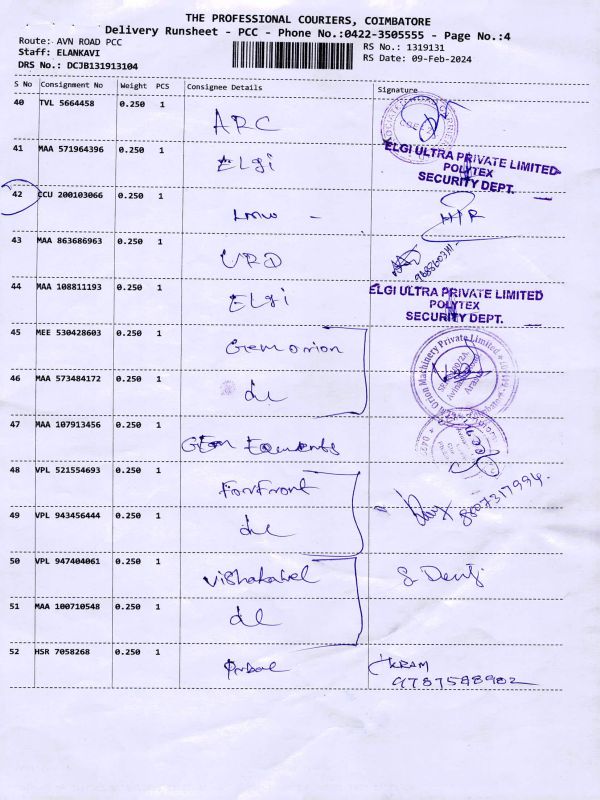 THE PROFESSIONAL COURIERS, COIMBATORE
Delivery Runsheet - PCC - Phone No.:0422-3505555 - Page No.:4
Route: AVN ROAD PCC
Staff: ELANKAVI
DRS No.: DCJB131913104
RS No.: 1319131
RS Date: 09-Feb-2024
S No Consignment No Weight PCS Consignee Details Signature
40 TVL 5664458 0.250 1 ARC
41 MAA 571964396 0.250 1 ELgi
ELGI ULTRA PRIVATE LIMITED
POLYTEX
SECURITY DEPT.
42 CCU 200103066 0.250 1 LMW - H/R
43 MAA 863686963 0.250 1 URD
44 MAA 108811193 0.250 1 ELgi
ELGI ULTRA PRIVATE LIMITED
POLYTEX
SECURITY DEPT.
45 MEE 530428603 0.250 1 Gem orion
46 MAA 573484172 0.250 1 du
Orion Machinery Private Limited
47 MAA 107913456 0.250 1 GEm
48 VPL 521554693 0.250 1 Forfront
49 VPL 943456444 0.250 1 du 8807317994.
50 VPL 947404061 0.250 1
51 MAA 100710548 0.250 1 du
52 HSR 7058268 0.250 1
IKRAM
9787598902